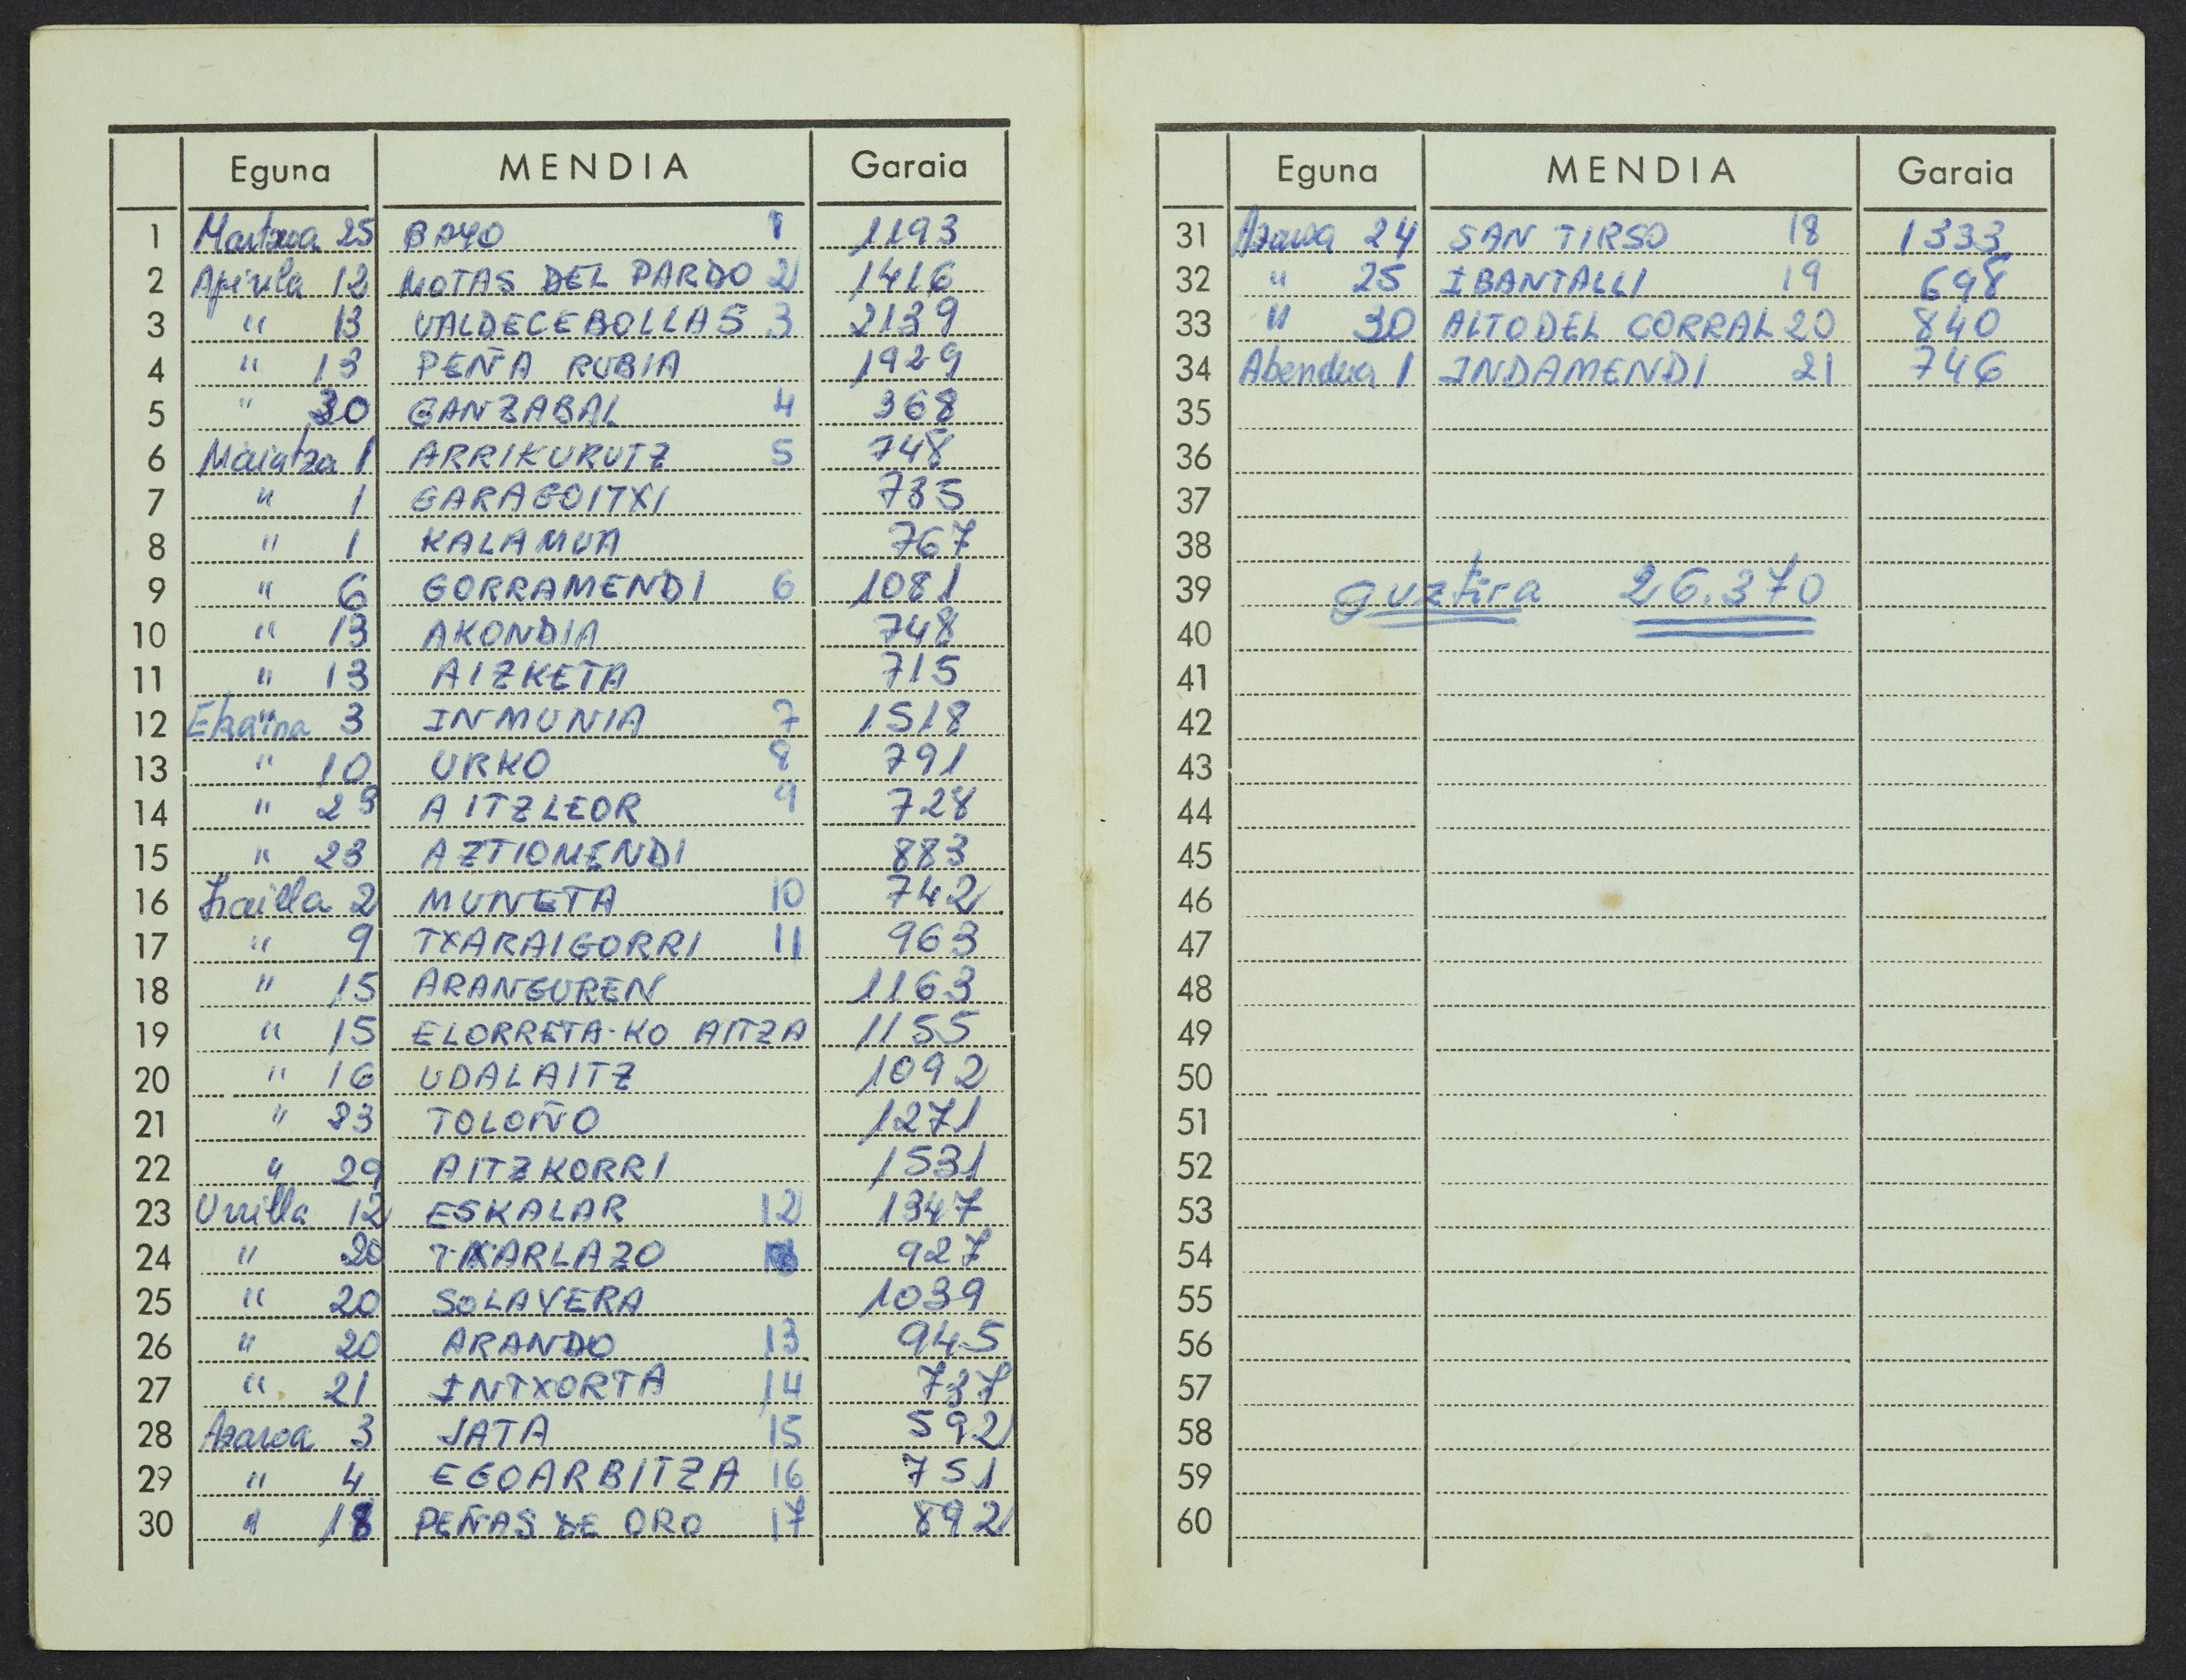 Eguna MENDIA Garaia
1 Martxoa 25 BAYO 1 1193
2 Apirila 12 MOTAS DEL PARDO 2 1416
3 " 13 VALDECEBOLLAS 3 2139
4 " 13 PEÑA RUBIA 1929
5 " 30 GANZABAL 4 368
6 Maiatza 1 ARRIKURUTZ 5 748
7 " 1 GARAGOITXI 735
8 " 1 KALAMUA 767
9 " 6 GORRAMENDI 6 1081
10 " 13 AKONDIA 748
11 " 13 AIZKETA 715
12 Ekaina 3 INMUNIA 7 1518
13 " 10 URKO 8 791
14 " 23 AITZLEOR 9 728
15 " 23 AZTIOMENDI 883
16 Irailla 2 MUNETA 10 742
17 " 9 TXARAIGORRI 11 963
18 " 15 ARANGUREN 1163
19 " 15 ELORRETA-KO AITZA 1155
20 " 16 UDALAITZ 1092
21 " 23 TOLOÑO 1271
22 " 29 AITZKORRI 1531
23 Urrilla 12 ESKALAR 12 1347
24 " 20 TXARLAZO 927
25 " 20 SOLAVERA 1039
26 " 20 ARANDO 13 945
27 " 21 INTXORTA 14 737
28 Azaroa 3 JATA 15 592
29 " 4 EGOARBITZA 16 751
30 " 18 PEÑAS DE ORO 17 892
Eguna MENDIA Garaia
31 Azaroa 24 SAN TIRSO 18 1333
32 " 25 IBANTALLI 19 698
33 " 30 ALTO DEL CORRAL 20 840
34 Abendua 1 INDAMENDI 21 746
35
36
37
38
39 guztira 26.370
40
41
42
43
44
45
46
47
48
49
50
51
52
53
54
55
56
57
58
59
60